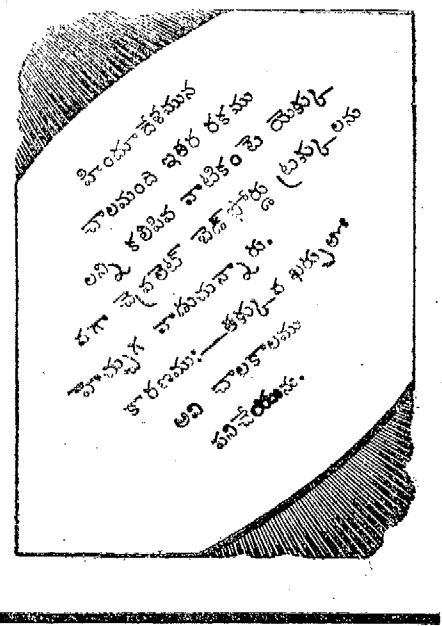 హిందూదేశమున
చాలమంది ఇతర రకము
లన్ని కలిపిన వాటికం టె యెక్కు
వగా ప్రైవేట్ బెడ్‌ఫోర్డు ట్రక్కులను
హెచ్చుగ వాడుచున్నారు.
కారణము:—తక్కువ ఖర్చులు
అవి చాలకాలము
పనిచేయును.